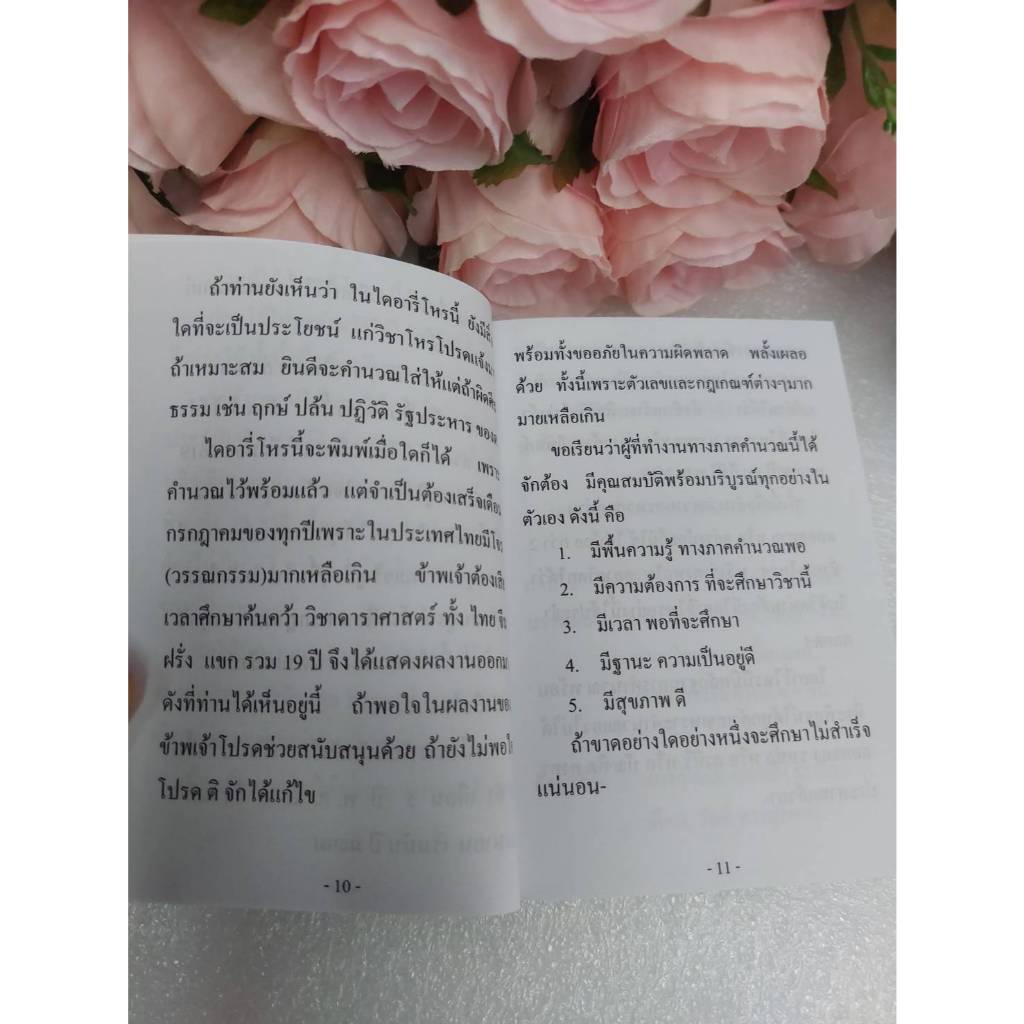 ถ้าท่านยังเห็นว่า ในไดอารี่โหรนี้ ยังมี
ใดที่จะเป็นประโยชน์ แก่วิชาโหรโปรดแจ้ง
ถ้าเหมาะสม ยินดีจะคำนวณใส่ให้แต่ถ้าผิด
ธรรม เช่น ฤกษ์ ปล้น ปฏิวัติ รัฐประหาร
ไดอารี่โหรนี้จะพิมพ์เมื่อใดก็ได้
คำนวณไว้พร้อมแล้ว แต่จำเป็นต้องเสร็จเดือน
กรกฎาคมของทุกปีเพราะในประเทศไทยมี
(วรรณกรรม)มากเหลือเกิน ข้าพเจ้าต้อง
เวลาศึกษาค้นคว้า วิชาดาราศาสตร์ ทั้ง ไทย
ฝรั่ง แขก รวม 19 ปี จึงได้แสดงผลงานออก
ดังที่ท่านได้เห็นอยู่นี้ ถ้าพอใจในผลงาน
ข้าพเจ้าโปรดช่วยสนับสนุนด้วย ถ้ายังไม่พอใ
โปรด ติ จักได้แก้ไข
- 10 -
พร้อมทั้งขออภัยในความผิดพลาด พลั้งเผลอ
ด้วย ทั้งนี้เพราะตัวเลขและกฎเกณฑ์ต่างๆมาก
มายเหลือเกิน
ขอเรียนว่าผู้ที่ทำงานทางภาคคำนวณนี้ได้
จักต้อง มีคุณสมบัติพร้อมบริบูรณ์ทุกอย่างใน
ตัวเอง ดังนี้ คือ
1. มีพื้นความรู้ ทางภาคคำนวณพอ
2. มีความต้องการ ที่จะศึกษาวิชานี้
3. มีเวลา พอที่จะศึกษา
4. มีฐานะ ความเป็นอยู่ดี
5. มีสุขภาพ ดี
ถ้าขาดอย่างใดอย่างหนึ่งจะศึกษาไม่สำเร็จ
แน่นอน-
- 11 -